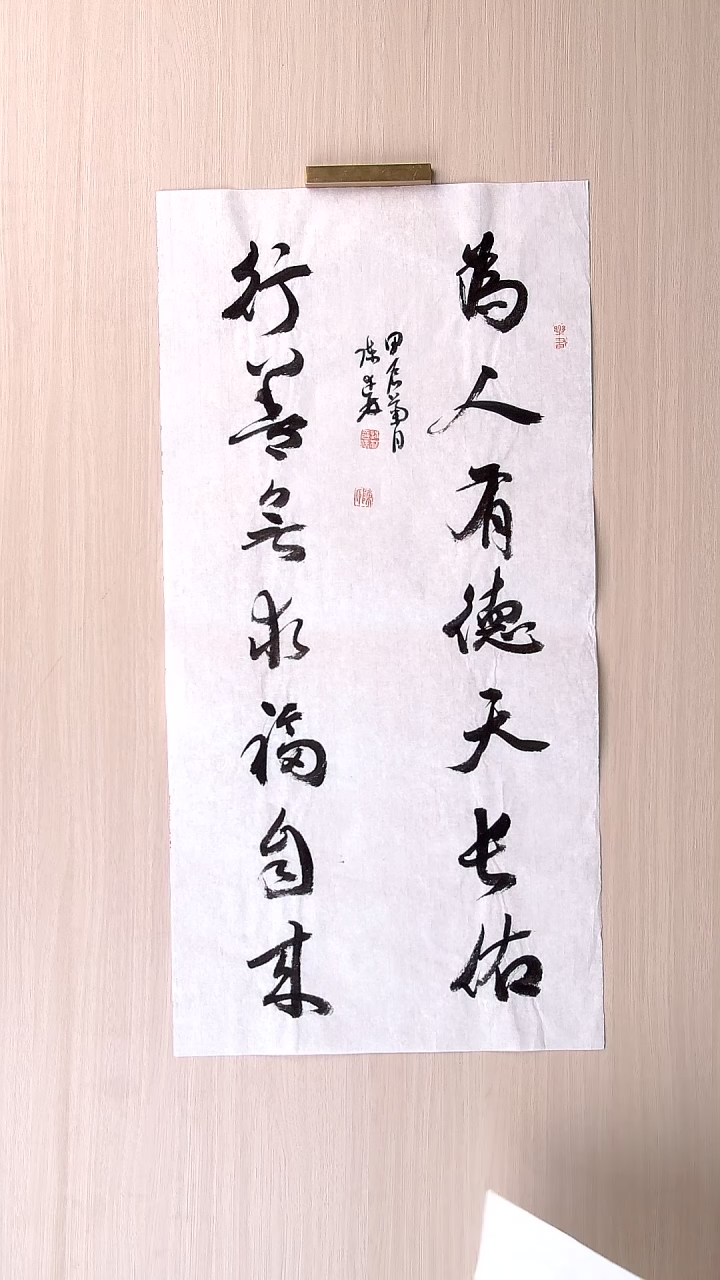 為人有德天長佑
甲辰菊月
行善無求福自来